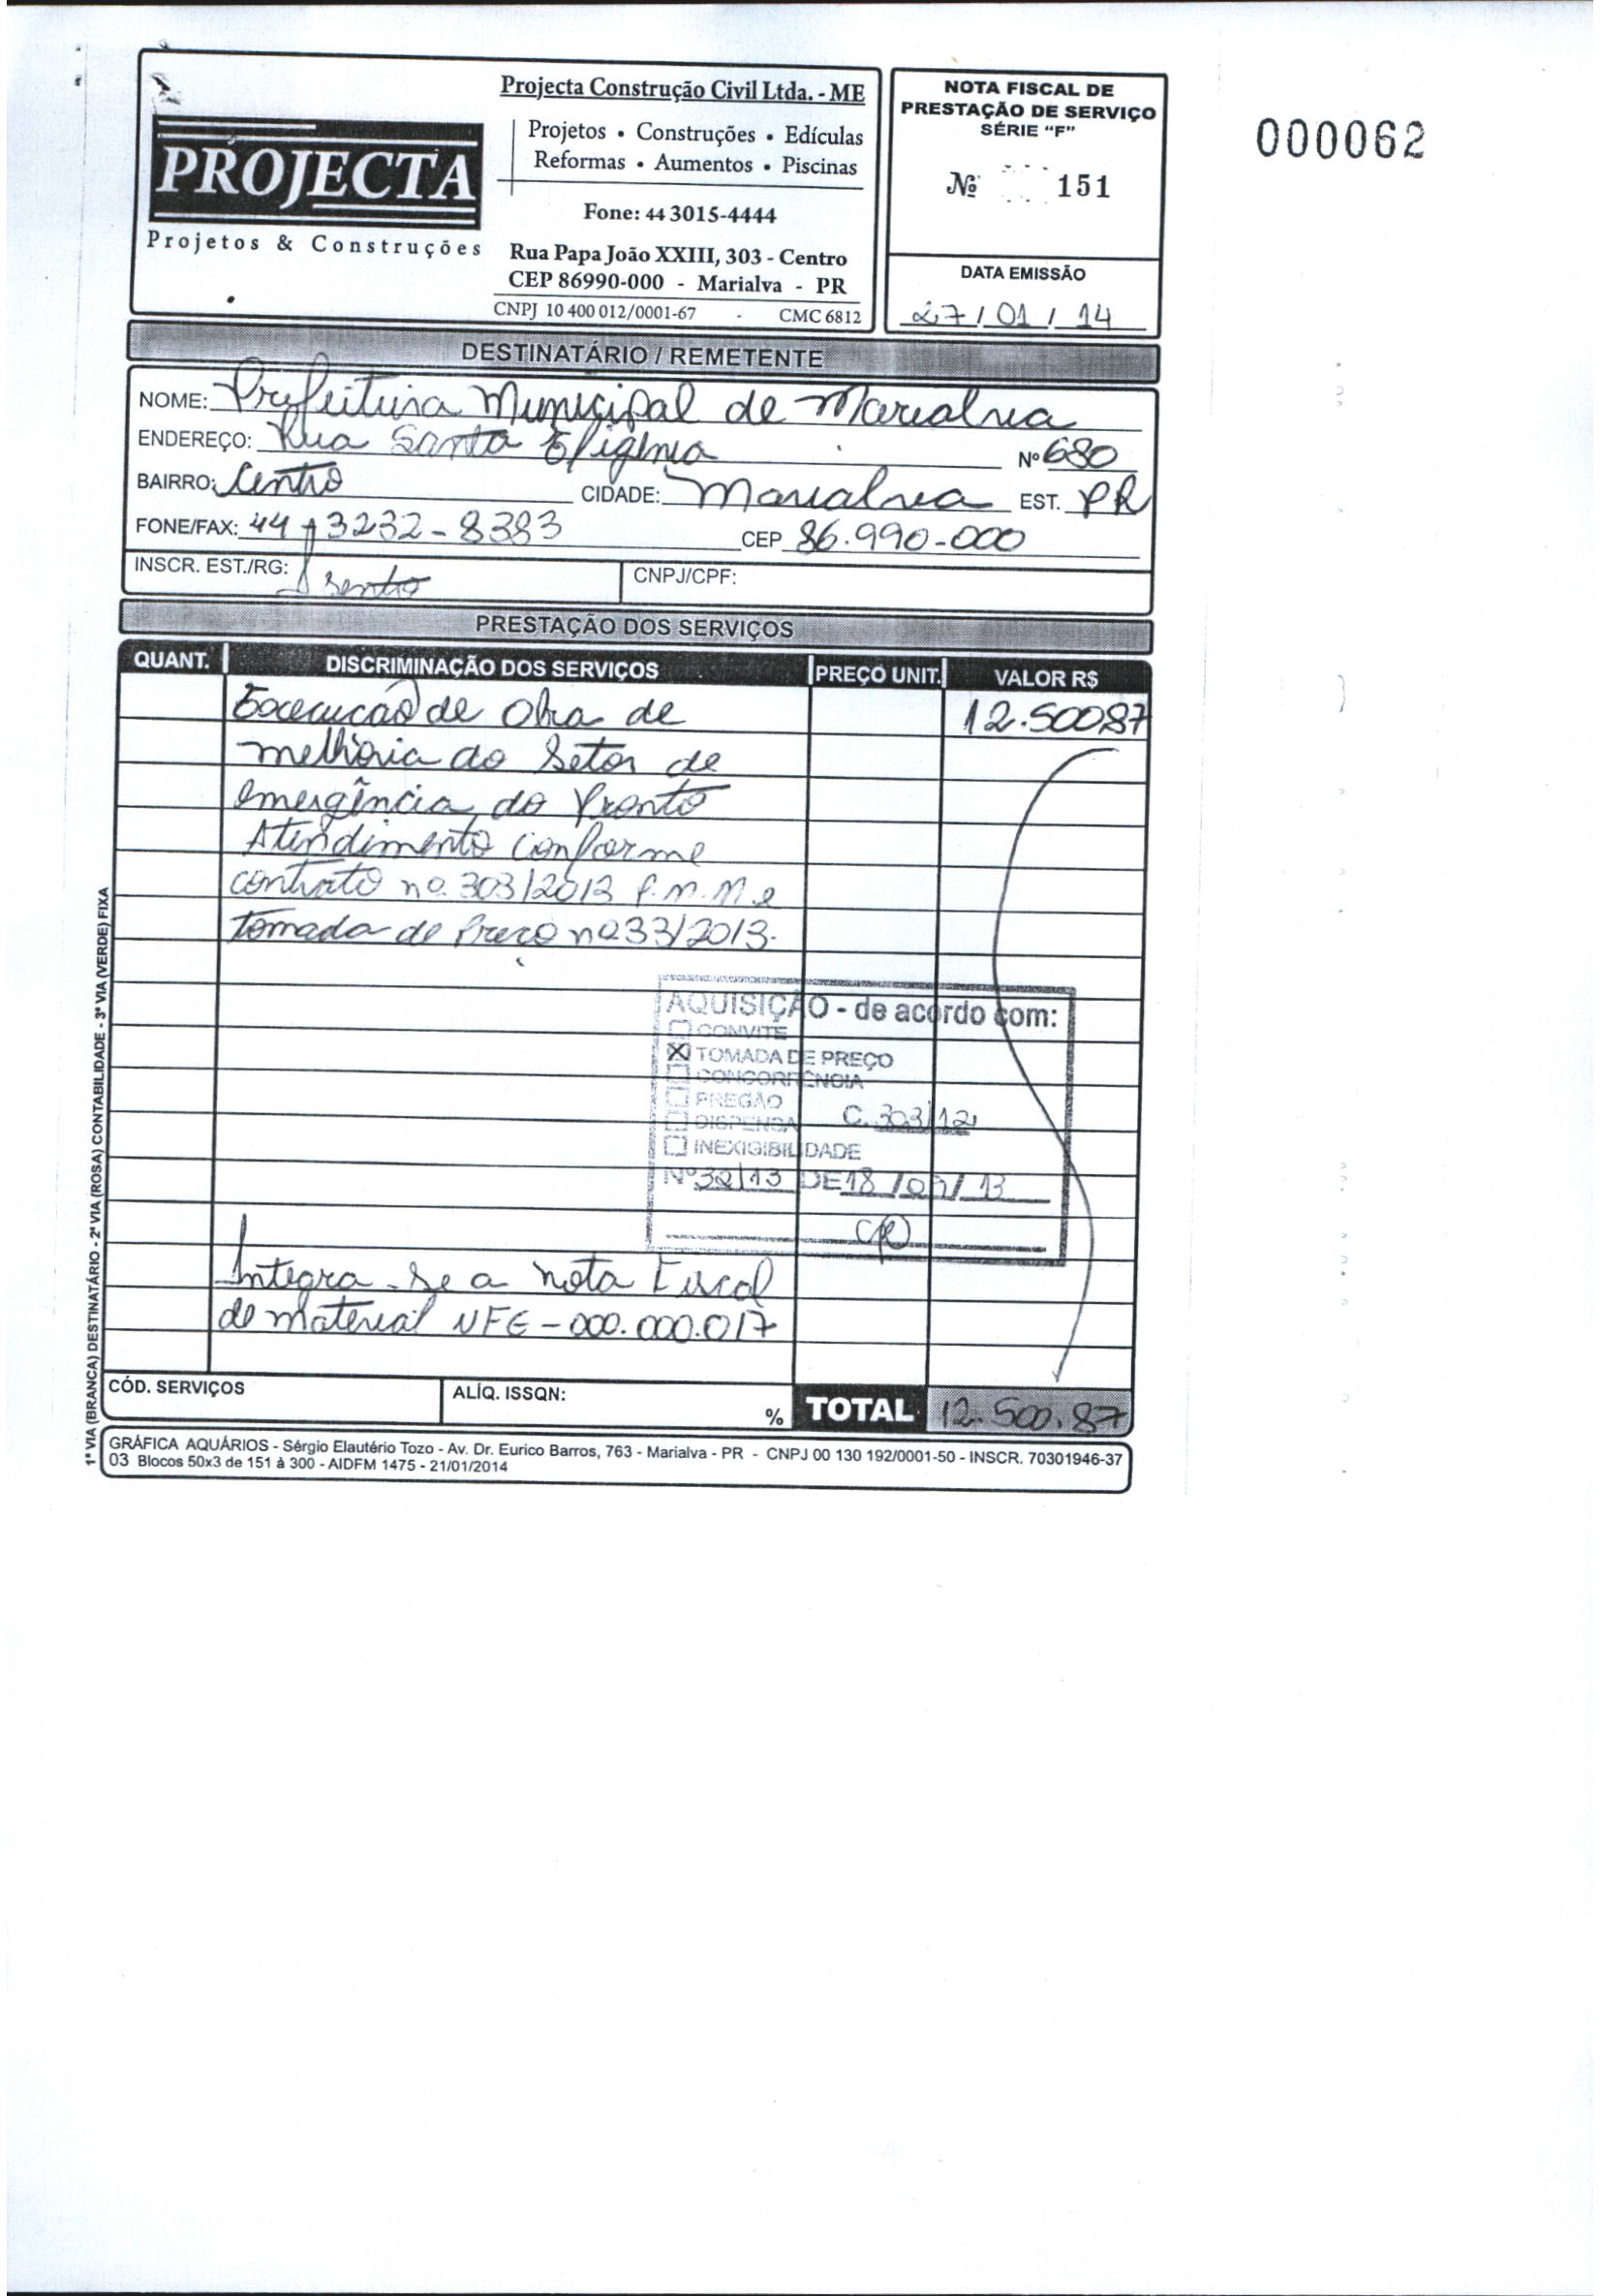 Projecta Construção Civil Ltda. - ME
Projetos • Construções • Edículas
Reformas • Aumentos • Piscinas
PROJECTA
Projetos & Construções
Fone: 44 3015-4444
Rua Papa João XXIII, 303 - Centro
CEP 86990-000 - Marialva - PR
CNPJ 10 400 012/0001-67 - CMC 6812
NOTA FISCAL DE
PRESTAÇÃO DE SERVIÇO
SÉRIE "F"
Nº 151
DATA EMISSÃO
27/01/14
000062
DESTINATÁRIO / REMETENTE
NOME: Prefeitura Municipal de Marialva
ENDEREÇO: Rua Santa Efigênia Nº 680
BAIRRO: Centro CIDADE: Marialva EST. PR
FONE/FAX: 44 3232-8383 CEP 86.990-000
INSCR. EST./RG: Isento CNPJ/CPF:
PRESTAÇÃO DOS SERVIÇOS
QUANT. DISCRIMINAÇÃO DOS SERVIÇOS PREÇO UNIT. VALOR R$
Execução de Obra de 12.500,87
melhoria do Setor de
emergência do Pronto
Atendimento conforme
contrato no. 303/2013 P.M.M e
Tomada de Preço no 33/2013.
AQUISIÇÃO - de acordo com:
☐ CONVITE
☒ TOMADA DE PREÇO
☐ CONCORRÊNCIA
☐ PREGÃO
☐ DISPENSA C. 303/12
☐ INEXIGIBILIDADE
Nº 32/13 DE 18/09/13
Integra-se a nota Fiscal
de material NFE-000.000.017
CÓD. SERVIÇOS ALÍQ. ISSQN: % TOTAL 12.500,87
GRÁFICA AQUÁRIOS - Sérgio Elautério Tozo - Av. Dr. Eurico Barros, 763 - Marialva - PR - CNPJ 00 130 192/0001-50 - INSCR. 70301946-37
03 Blocos 50x3 de 151 à 300 - AIDFM 1475 - 21/01/2014
1ª VIA (BRANCA) DESTINATÁRIO - 2ª VIA (ROSA) CONTABILIDADE - 3ª VIA (VERDE) FIXA